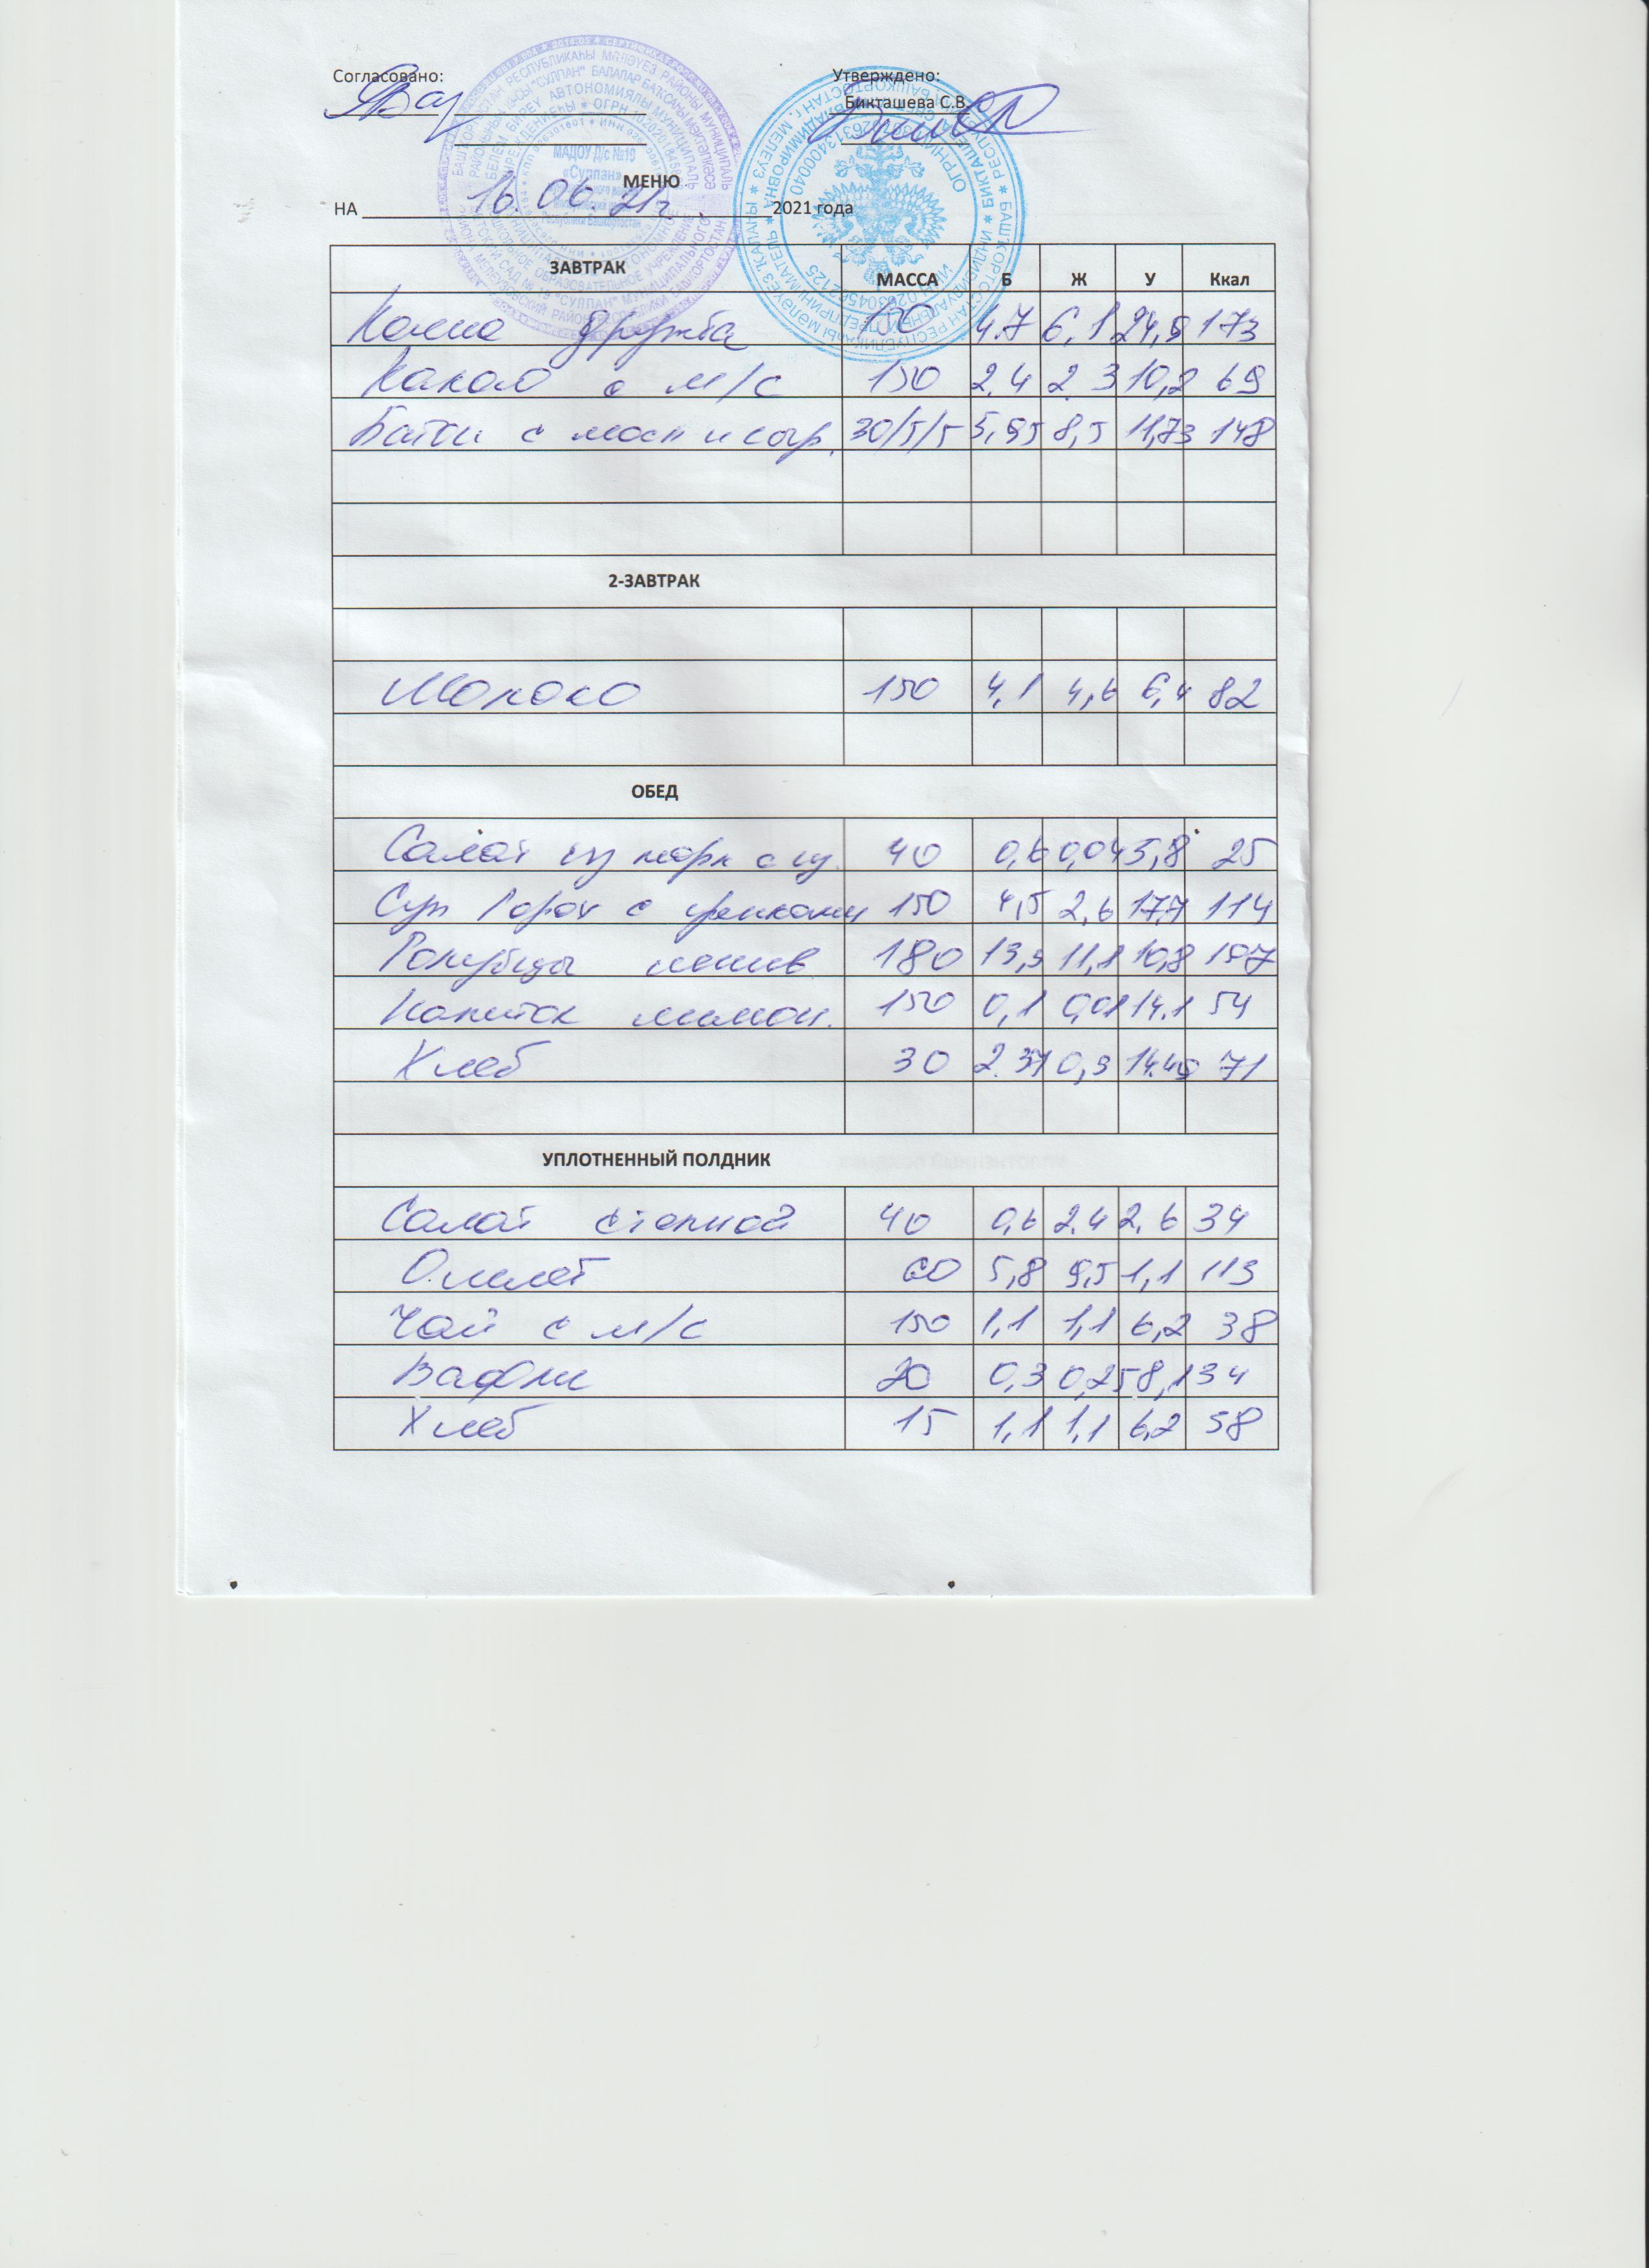 Согласовано: Утверждено:
Бикташева С.В.
МАДОУ Д/с №19
«Сулпан»
МЕНЮ
НА 16.06.21г. 2021 года
ЗАВТРАК МАССА Б Ж У Ккал
Каша дружба 150 4.7 6,1 24,9 173
Какао с м/с 150 2.4 2.3 10,2 69
Батон с масл и сыр. 30/5/5 5,95 8,5 11,73 148
2-ЗАВТРАК
Молоко 150 4,1 4,6 6,4 82
ОБЕД
Салат из морк с из. 40 0,6 0,04 5,8 25
Суп Горох с гренками 150 4,5 2,6 17,7 114
Голубцы ленив 180 13,9 11,1 10,8 197
Напиток лимон. 150 0,1 0,01 14.1 54
Хлеб 30 2.37 0,3 14.49 71
УПЛОТНЕННЫЙ ПОЛДНИК
Салат степной 40 0,6 2.4 2.6 34
Омлет 60 5,8 9,5 1,1 113
Чай с м/с 150 1,1 1,1 6,2 38
Вафли 20 0,3 0,25 8,1 34
Хлеб 15 1,1 1,1 6,2 58